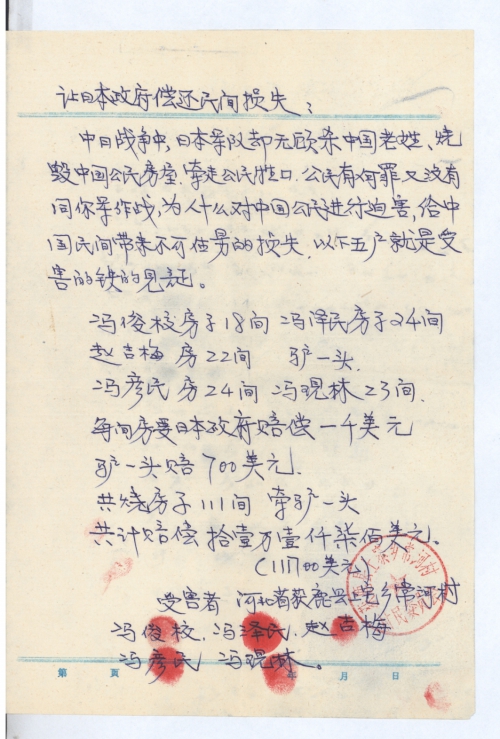 让日本政府偿还民间损失：
中日战争中，日本军队却无顾杀中国老姓、烧
毁中国公民房屋、牵走公民牲口。公民有何罪又没有
同你军作战，为什么对中国公民进行迫害，给中
国民间带来不可估另的损失，以下五户就是受
害的铁的见证。
冯俊校房子18间 冯泽民房子24间
赵吉梅 房22间 驴一头.
冯彦民 房24间 冯现林23间.
每间房要日本政府赔偿一千美元
驴一头赔700美元.
共烧房子111间 牵驴一头
共计赔偿 拾壹万壹仟柒佰美元.
(111700美元)
受害者 河北省获鹿县上庄乡常河村
冯俊校，冯泽民，赵吉梅
冯彦民 冯现林。
第 頁 年 月 日